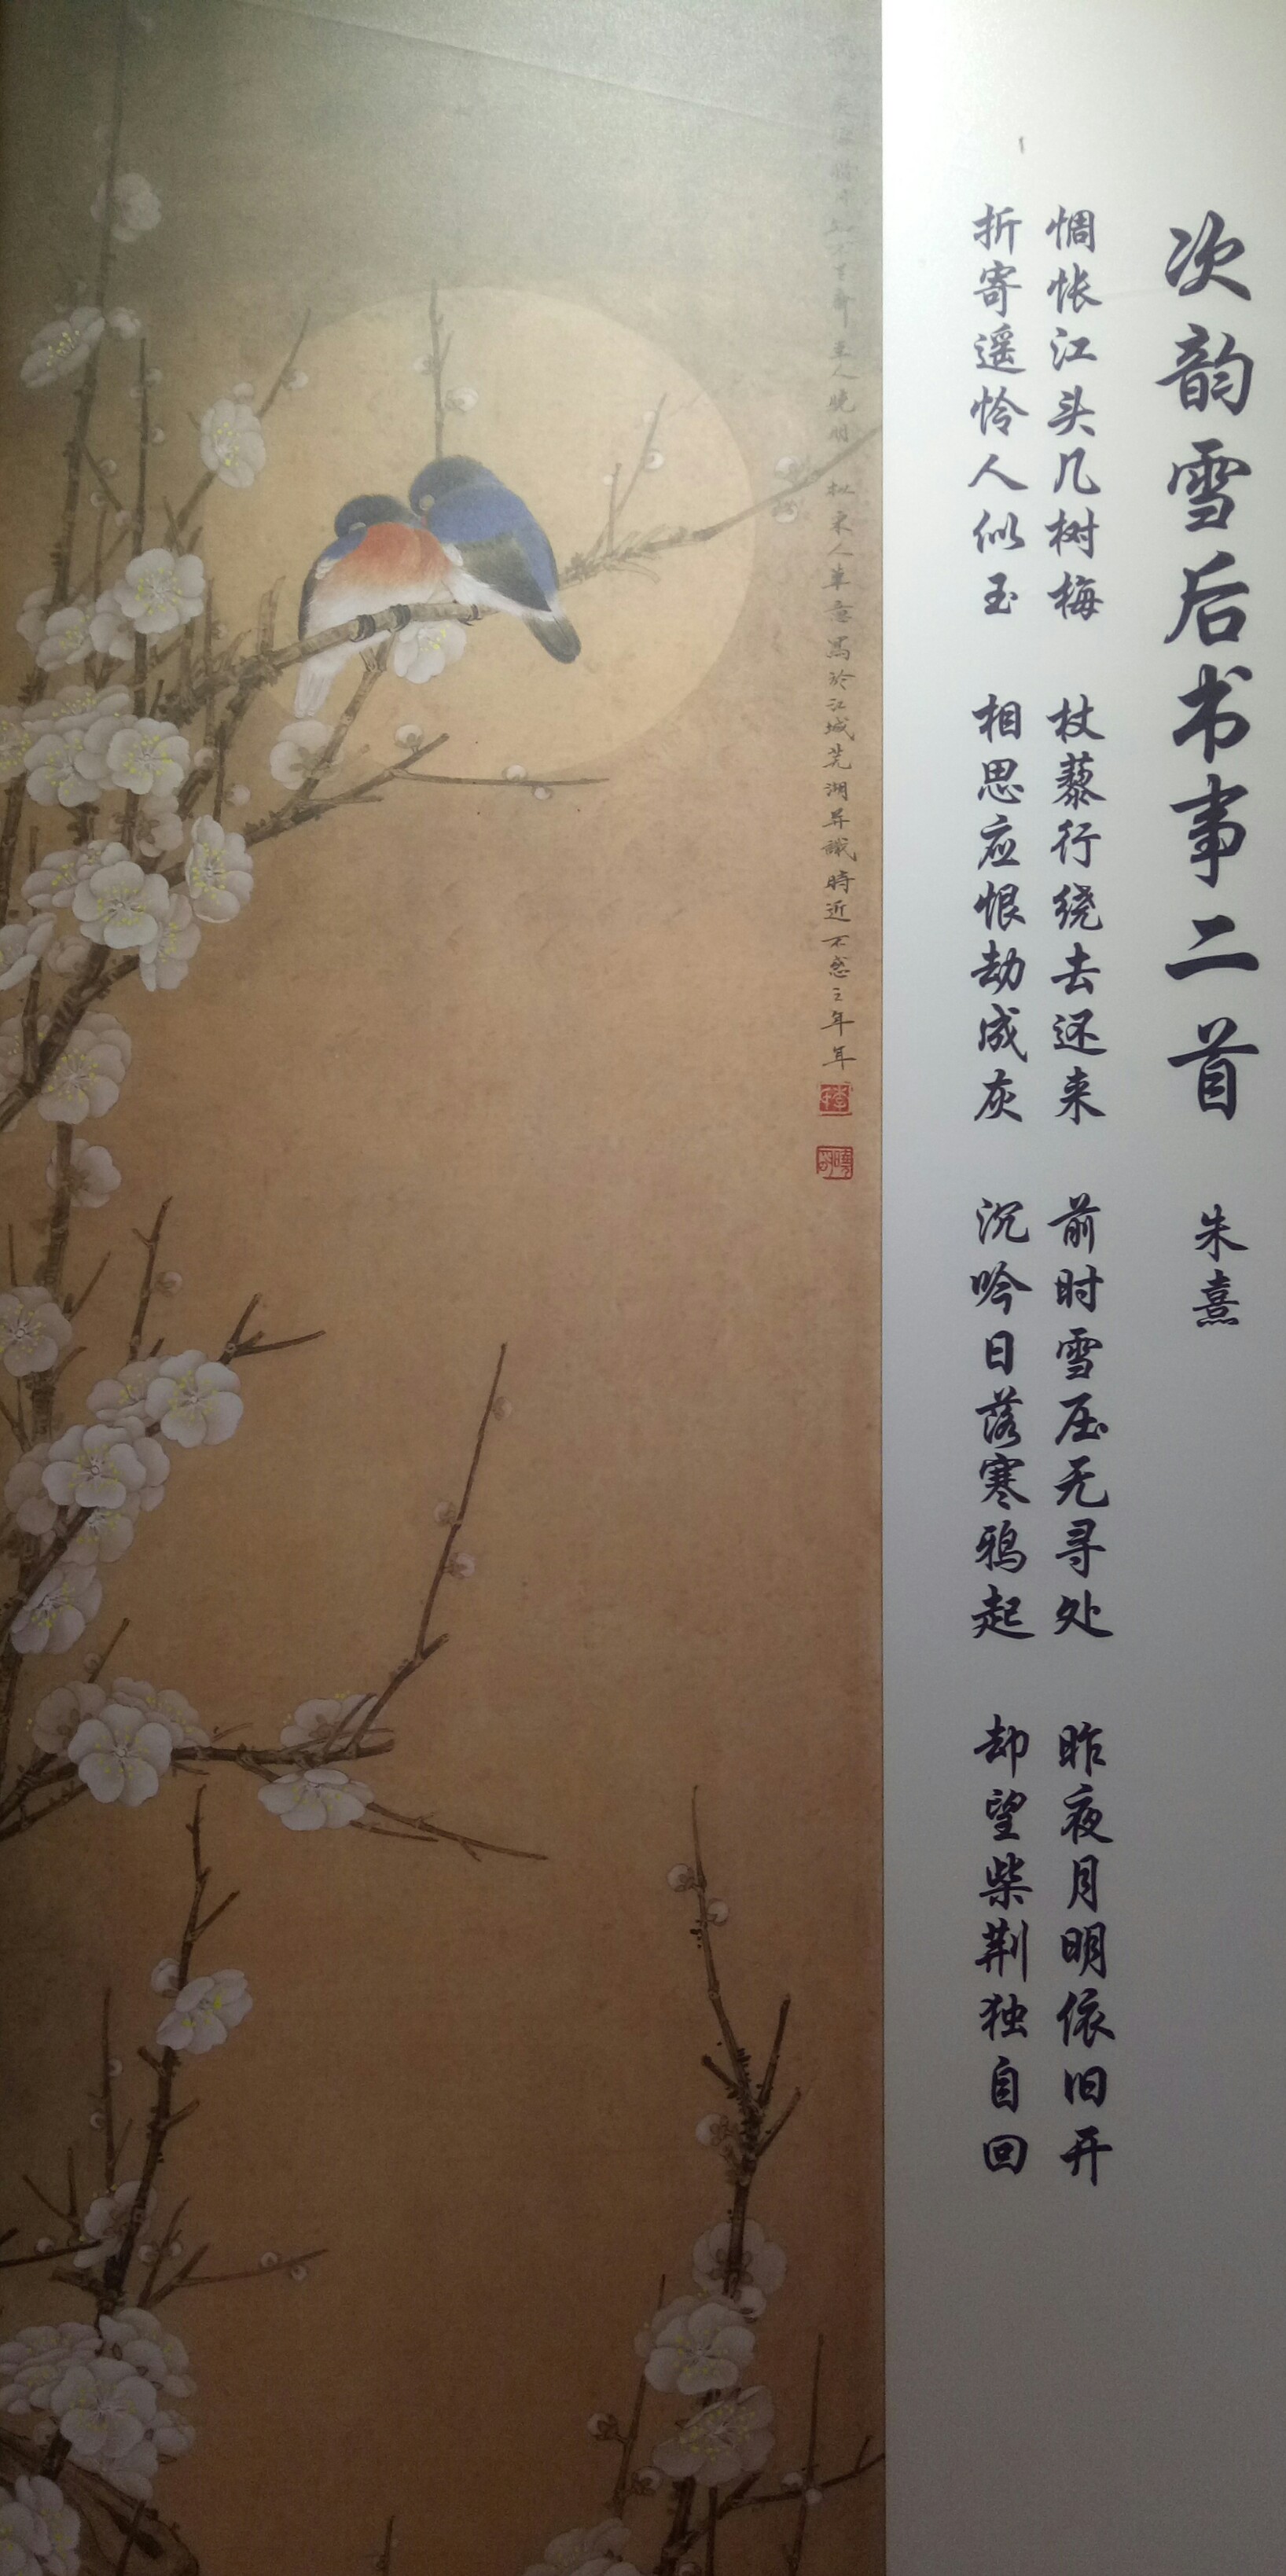 次韵雪后书事二首 朱熹
惆怅江头几树梅 杖藜行绕去还来 前时雪压无寻处 昨夜月明依旧开
折寄遥怜人似玉 相思应恨劫成灰 沉吟日落寒鸦起 却望柴荆独自回
人晓明 拟宋人笔意写於江城芜湖并识時近不惑之年